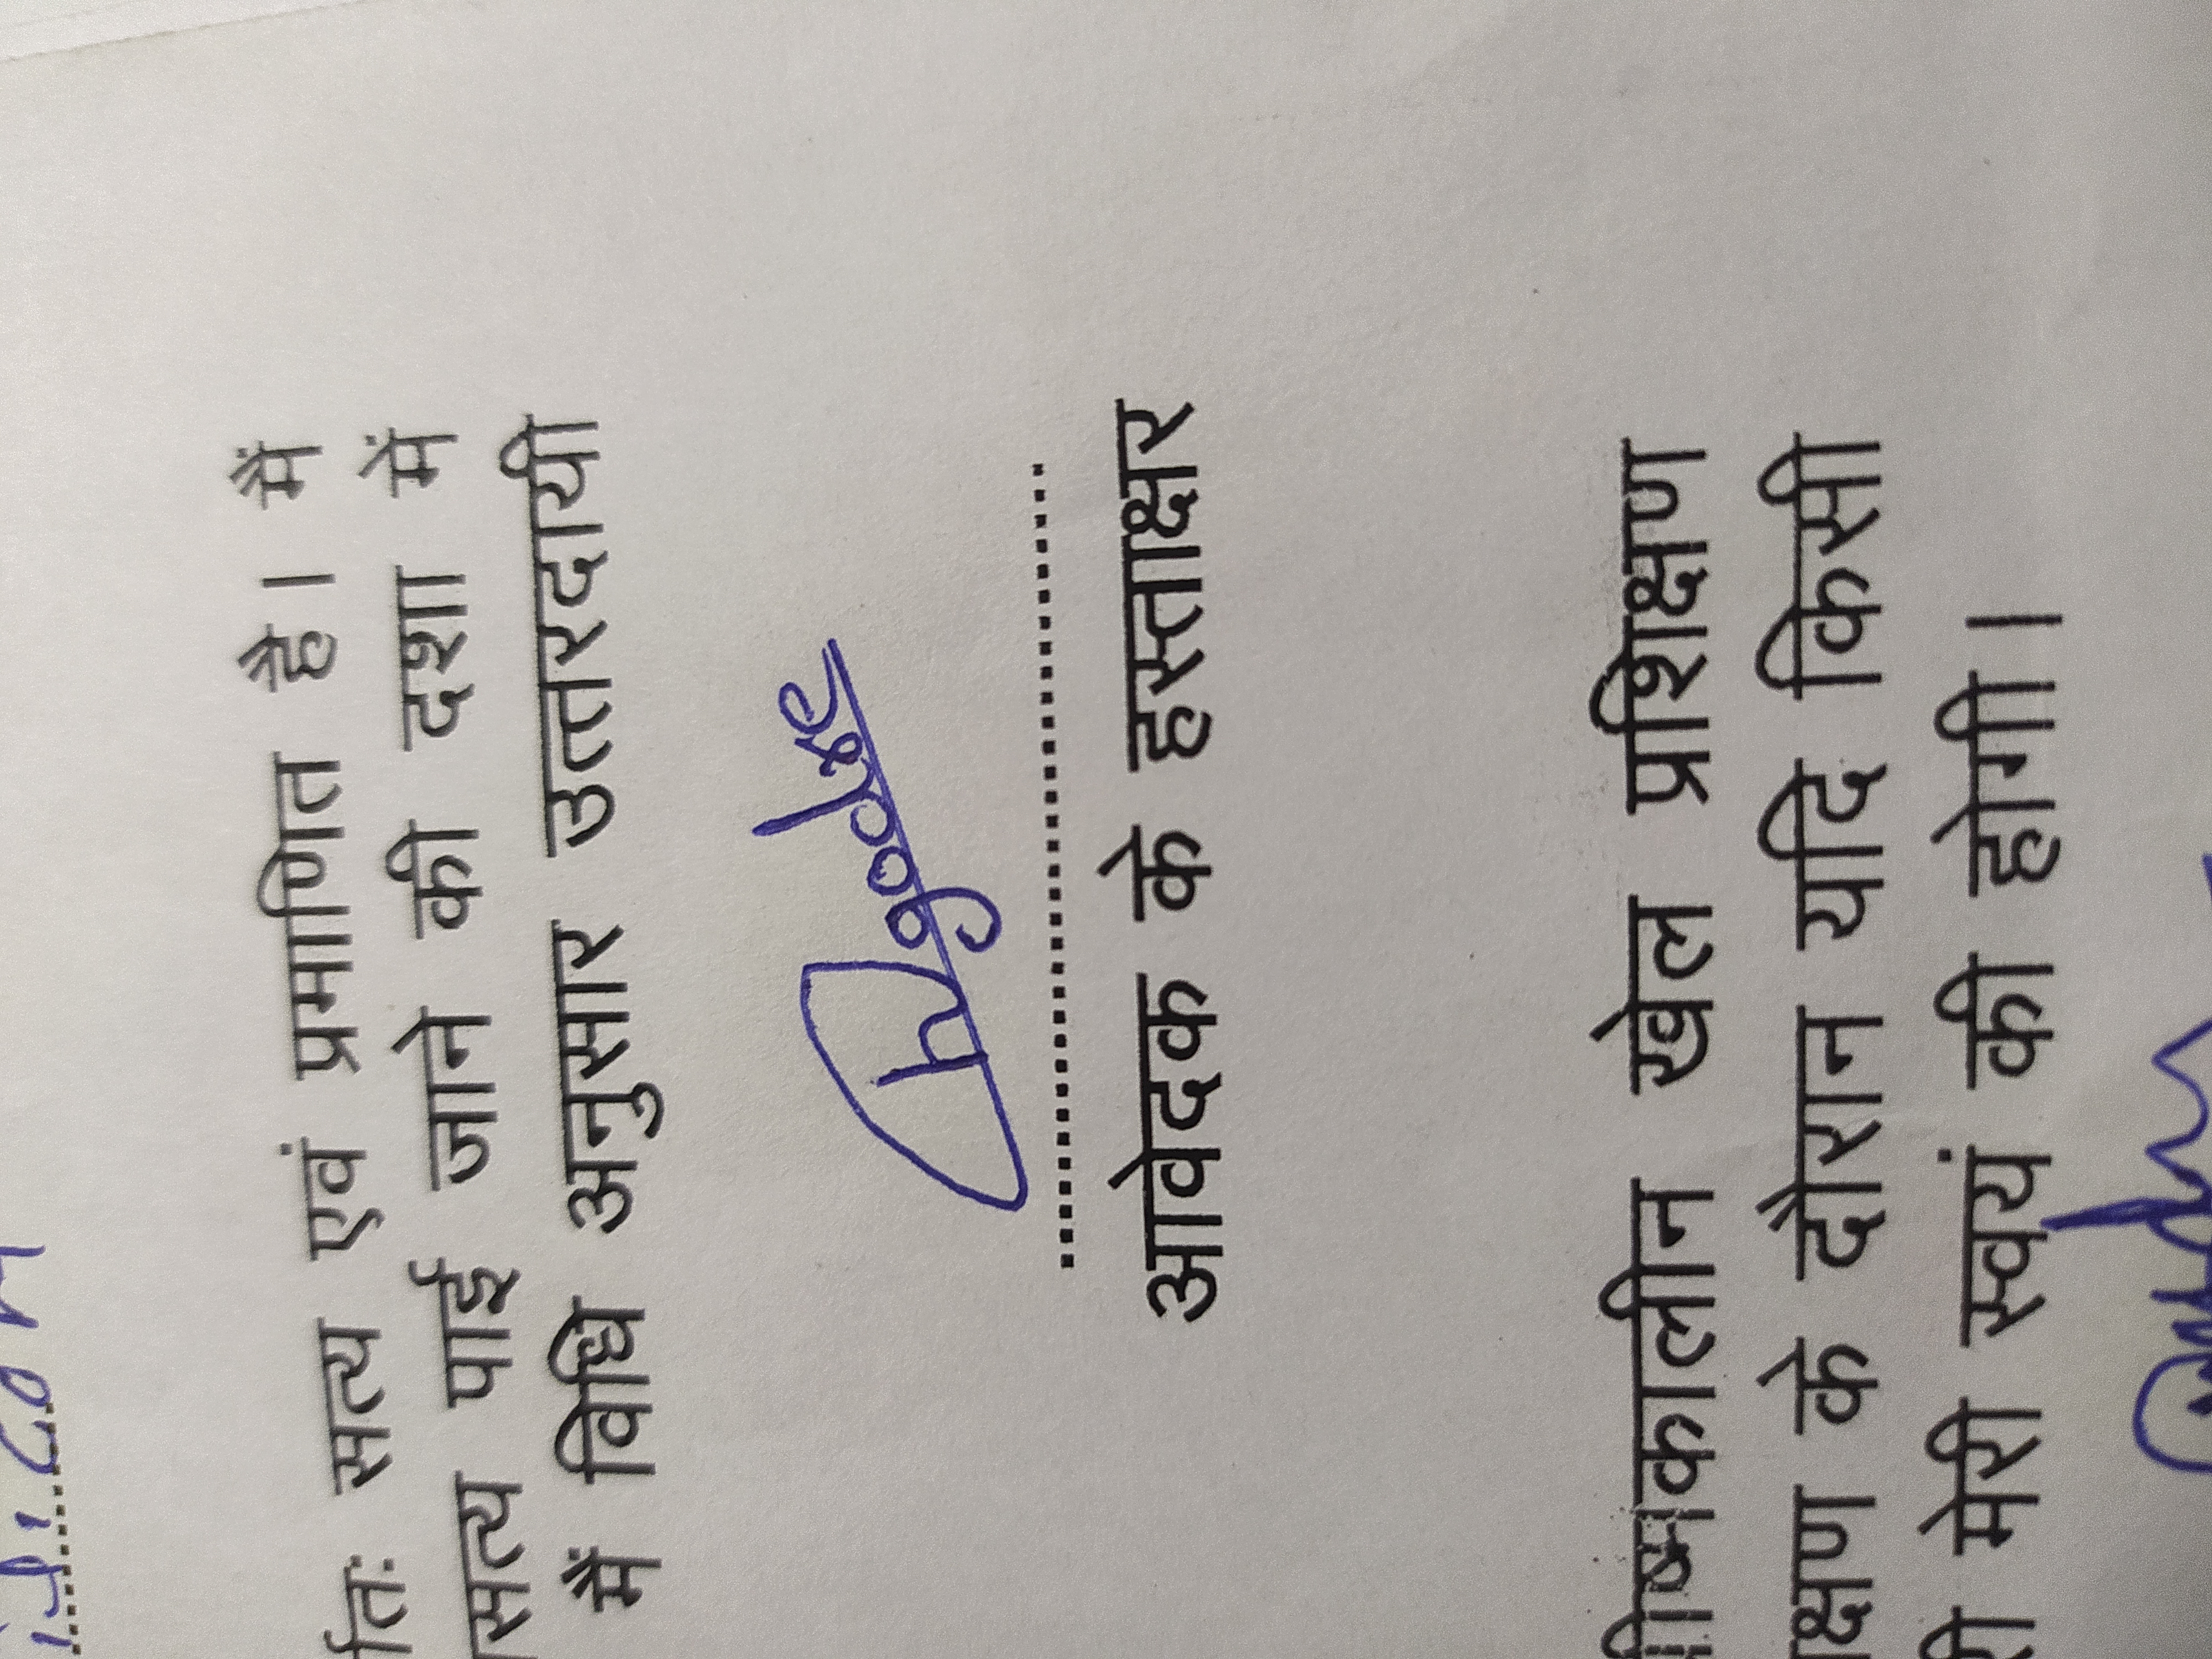 र्तिः सत्य एवं प्रमाणित है। मैं
सत्य पाई जाने की दशा में
मैं विधि अनुसार उत्तरदायी
आवेदक के हस्ताक्षर
ग्रीष्मकालीन खेल प्रशिक्षण
क्षण के दौरान यदि किसी
री मेरी स्वयं की होगी।